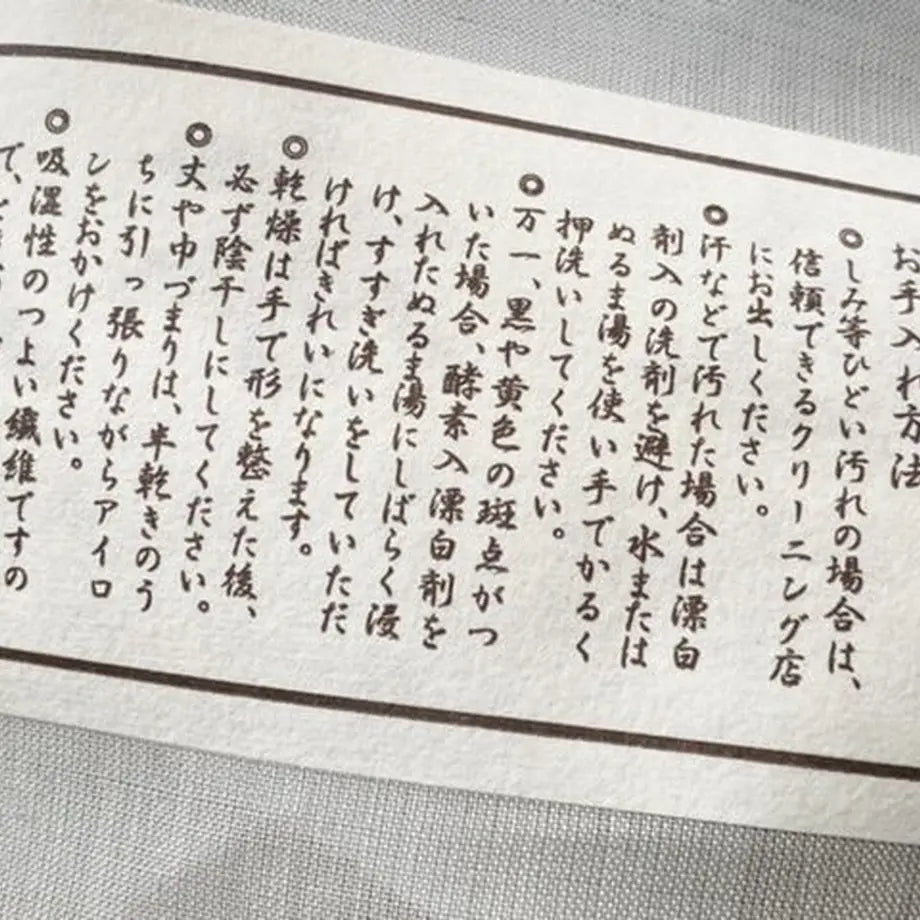 お手入れ方法
◎しみ等ひどい汚れの場合は、
信頼できるクリーニング店
にお出しください。
◎汗などで汚れた場合は漂白
剤入の洗剤を避け、水または
ぬるま湯を使い手でかるく
押洗いしてください。
◎万一、黒や黄色の斑点がつ
いた場合、酵素入漂白剤を
入れたぬるま湯にしばらく浸
け、すすぎ洗いをしていただ
ければきれいになります。
◎乾燥は手で形を整えた後、
必ず陰干しにしてください。
◎丈や巾づまりは、半乾きのう
ちに引っ張りながらアイロ
ンをおかけください。
◎吸湿性のつよい繊維ですの
で、